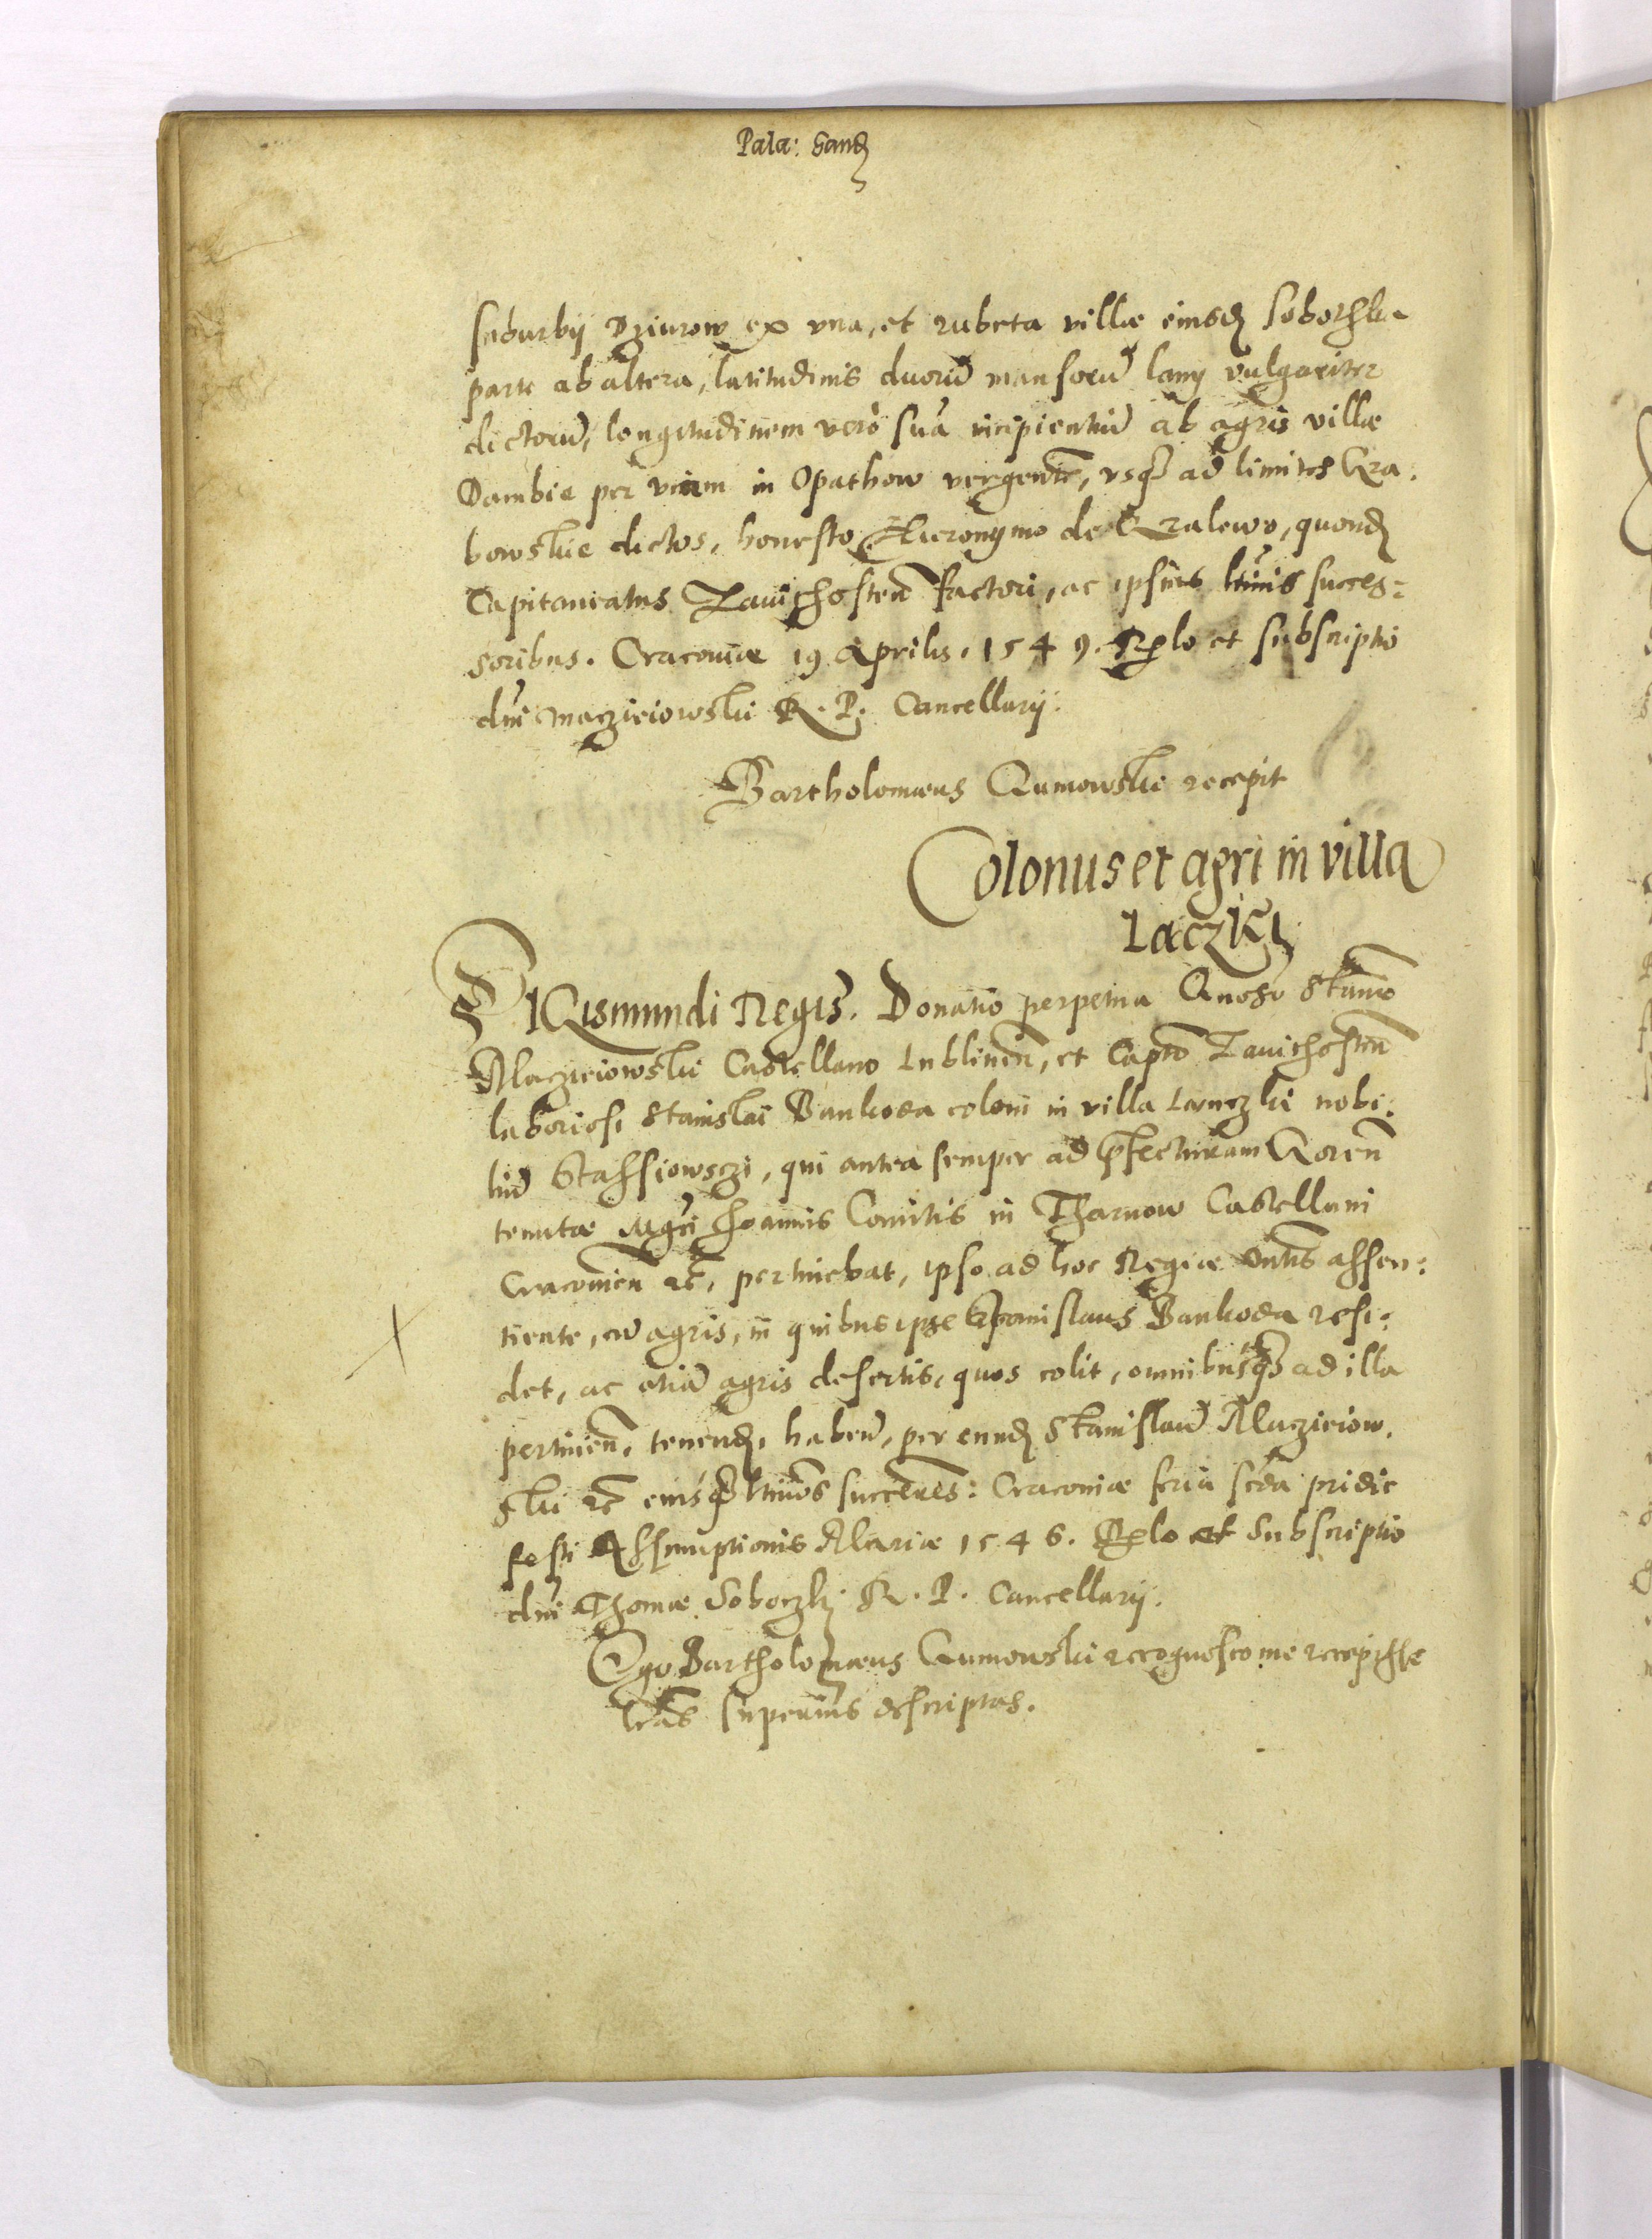 Pala: Sand
suburbij Dziurow ex vna, et rubeta villæ eiusd Soborzka
parte ab altera, latitudinis duorũ mansorũ lany vulgariter
dictorũ, longitudinem verò suã incipientiũ ab agris villæ
Dambie per viam in Opathow vergentẽ, vsq ad limites Gra.
bowskie dictos, honesto Hieronymo de Gralewo, quond
Capitaneatus Zauichosteñ factori, ac ipsius ltimis succes:
soribus. Cracoviæ 19 Aprilis. 1549. Sglo et subscriptio
dñi Maczieiowski R. P. Cancellarij.
Bartholomæus Gumowskie recepit
Colonus et agri in villa
Laczki
SIGismundi Regis. Donatio perpetua Gnoso Stanio
Maczieiowski Castellano Lublineñ, et Capto Zauichosteñ
laboriosi Stanislai Bankoda coloni in villa Lanczki nobi:
liũ Stassiowsczi, qui antea semper ad pfecturam Goreñ
tenutæ Mgci Joannis Comitis in Tharnow Castellani
Cracovieñ etc, pertinebat, ipso ad hoc Regiæ Mtis assen:
tiente, cũ agris, in quibus ipse Stanislaus Bankoda resi:
det, ac etiã agris desertis, quos colit, omnibusq ad illa
pertineñ, tenend, habeñ, per eund Stanislaũ Maczieiow.
ski etc eiusq ltimos succeres: Cracoviæ feria scda pridie
festi Assumptionis Mariæ 1546. Sglo et Subscriptio
dñi Thomæ Soboczki R. P. Cancellarij.
Ego Bartholomæus Gumowski recognosco me recepisse
lras superius descriptas.